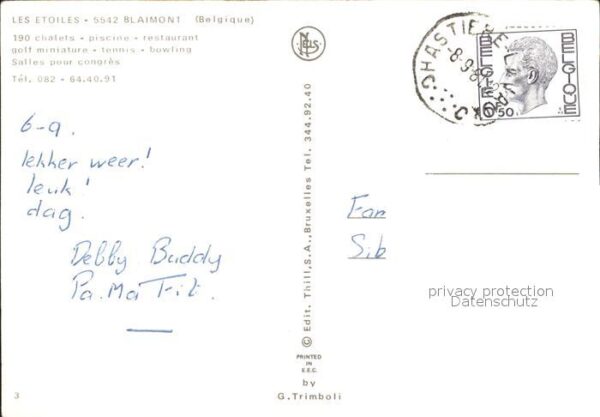 LES ETOILES - 5542 BLAIMONT (Belgique)
190 chalets - piscine - restaurant
golf miniature - tennis - bowling
Salles pour congrès
Tél. 082 - 64.40.91
6-9.
lekker weer!
leuk!
dag.
Debby Buddy
Pa. Ma
3
NELS
© Edit. Thill, S.A., Bruxelles Tel. 344.92.40
PRINTED
IN
E.E.C.
by
G. Trimboli
HASTIERE-LAVAUX
-8-9-8
BELGIE
BELGIQUE
6 50
Fam
Sib
privacy protection
Datenschutz